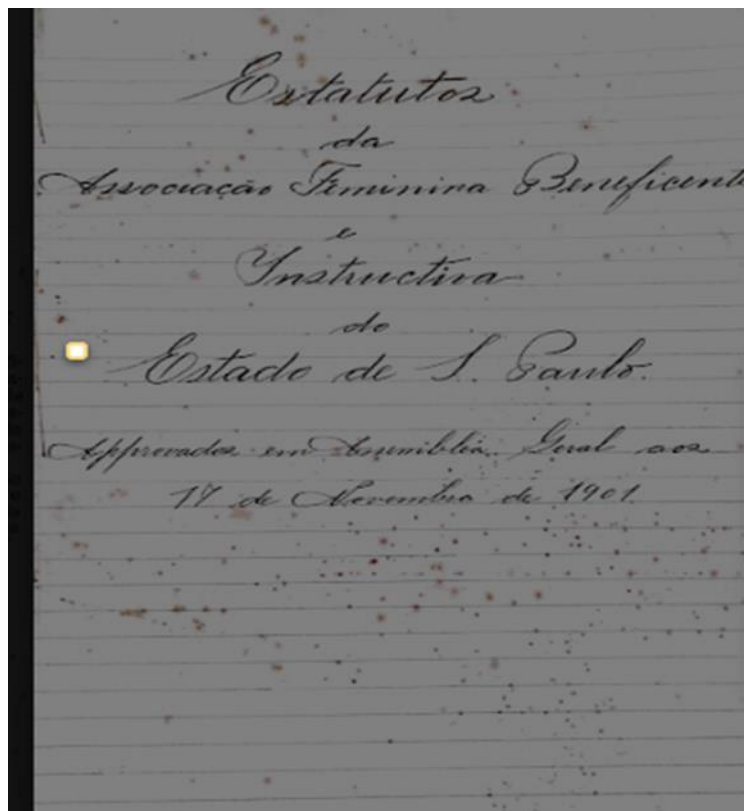 Estatutos
da
Associação Feminina Beneficente
e
Instructiva
do
Estado de S. Paulo.
Approvados em Assembléa Geral aos
17 de Novembro de 1901